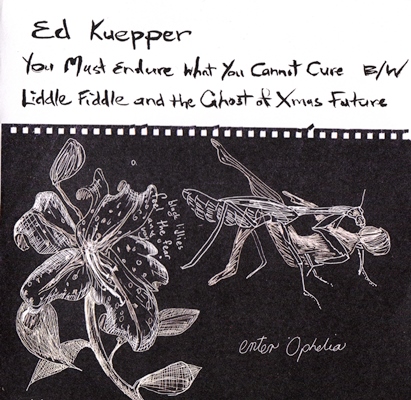 Ed Kuepper
You Must Endure What You Cannot Cure B/W
Liddle Fiddle and the Ghost of Xmas Future
feel the fear
enter Ophelia